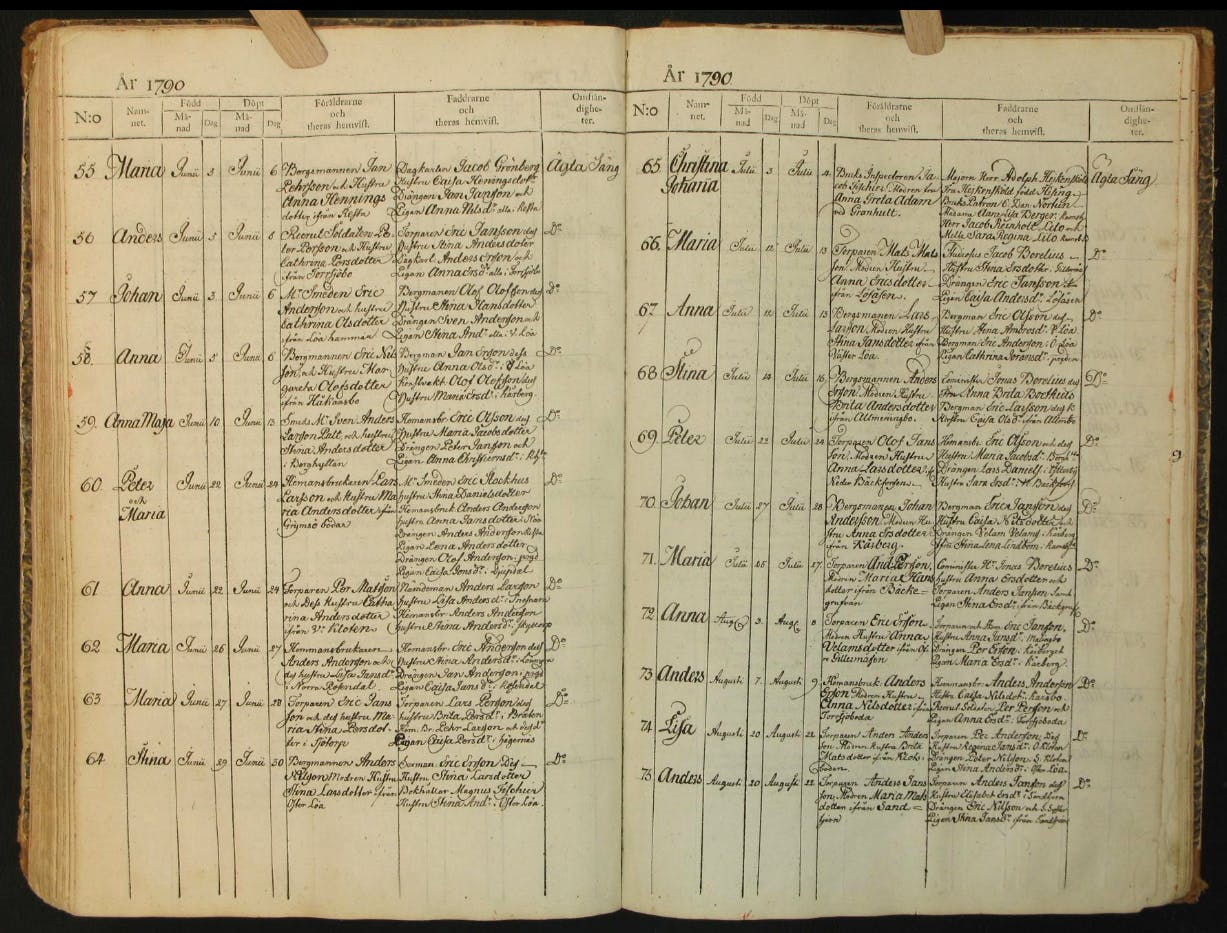 År 1790
N:o
Nam-
net.
Född
Må-
nad
Dag
Döpt
Må-
nad
Dag
Föräldrarne
och
theras hemvist.
Faddrarne
och
theras hemvist.
Omstän-
dighe-
ter.
55 Maria Junii 3 Junii 6
Bergsmannen Jan
Pehrsson och Hustru
Anna Hennings
dotter ifrån Resta
Jacob Grönberg
Hustru Caisa Heningsdotter
Drängen Jan Janson och
Pigan Anna Nilsd: alla i Resta
Ägta Säng
56 Anders Junii 5 Junii 8
Recrut Soldaten Pe-
ter Person och Hustru
Cathrina Persdotter
ifrån Torrsjöbo
Torparen Eric Jansson des
Hustru Stina Andersdoter
Anders Erson och
Pigan Anna Ersd: alla i Torrsjöbo
Do
57 Johan Junii 3 Junii 6
Mr Smeden Eric
Anderson och hustru
Cathrina Olsdotter
ifrån Löa hammar
Bergmanen Olof Olofson des
Hustru Stina Hansdotter
Drängen Sven Anderson och
Pigan Stina And: alla i V. Löa
Do
58. Anna Junii 5 Junii 6
Bergsmannen Eric Nil
son, och Hustru Mar-
gareta Olofsdotter
ifrån Håkansbo
Bergman Jan Erson dess
Hustru Anna Olsd: i Löa
Olof Olofson des
Hustru Maria Ersd: i Kårberg.
Do
59. Anna Maja Junii 10 Junii 13
Smeds Mr Sven Anders
Larson och hustru
Stina Andersdotter
i Berghyttan
Hemansbr Eric Olsson des
Hustru Maria Jacobsdotter
Drängen Peter Janson och
Pigan Anna
Do
60. Peter
och
Maria
Junii 22 Junii 24
Hemansbrukaren Lars
Larsson och Hustru Ma
ria Andersdotter ifrån
Grimsö bodar
Mr Smeden Eric Stockhus
hustru Stina Danielsdotter
Hemansbruk Anders Anderson
hustru Anna Jansdotter
Drängen Anders Anderson
Pigan Lena Andersdotter
Drängen Olof Anderson
Pigan Caisa Jonsd: i Djupdal
Do
61 Anna Junii 22 Junii 24
Torparen Per Matsson
och Dess Hustru Catha
rina Andersdotter
ifrån V: Kloten
Nämdeman Anders Larson
hustru Lisa Andersd:
Hemansbr Anders Anderson
hustru Stina Andersd:
Do
62 Maria Junii 26 Junii 27
Hemmansbrukaren
Anders Anderson och
des hustru Lisa Jansd:
i Norra Rosendal
Hemansbr Eric Anderson des
Hustru Stina Andersd:
Drängen Jan Anderson
Pigan Caisa Jans d: i Rosendal
Do
63 Maria Junii 27 Junii 28
Torparen Eric Jans
son och des hustru Ma-
ria Stina Persdot-
ter i Sjötorp
Torparen Lars Person des
hustru Brita Persd: i Bråten
Hem. Br. Pehr Larson och
Pigan Caisa Persd: i Högernäs
Do
64 Stina Junii 29 Junii 30
Bergsmannen Anders
Nilson Modren Hustru
Stina Larsdotter ifrån
Öster Löa
Eric Olson Des
Hustru Stina Larsdotter
Bokhållar Magnus
Hustru Stina And: i Öster Löa
Do
År 1790
N:o
Nam-
net.
Född
Må-
nad
Dag
Döpt
Må-
nad
Dag
Föräldrarne
och
theras hemvist.
Faddrarne
och
theras hemvist.
Omstän-
dighe-
ter.
65. Christina
Johana
Julii 3 Julii 4.
Bruks Inspectoren Ja
cob Modren fru
Anna Greta Adam
vid Granhult.
Majorn Herr Adolph Heskenskold
Fru Heskenskold född Hising
Bruks Patron
Berger
Herr Jacob Reinholt Lido och
Mlle Sara Regina Lido
Ägta Säng
66. Maria Julii 12 Julii 13
Torparen Mats Mats
son Modren Hustru
Anna Ericsdotter
ifrån Löfåsen.
Studiosus Jacob Borelius
Hustru Stina Ersdotter
Drängen Eric Jansson
Pigan Caisa Andersd: Löfåsen
Do
67. Anna Julii 12 Julii 13
Bergsmanen Lars
Larson Modren Hustru
Stina Jansdotter ifrån
Väster Löa.
Bergman Eric Olsson des
Hustru Anna Ambrosd: V Löa
Bergman Eric Anderson: Ö Löa
Pigan Cathrina
Do
68 Stina Julii 14 Julii 16.
Bergsmannen Anders
Erson Modren Hustru
Brita Andersdotter
ifrån Altmeningsbo.
Cominister Jonas Borelius des
Fru Anna Brita Bockhuis
Bergman Eric Larsson des
Hustru Caisa Olsd:
Do
69. Peter Julii 22 Julii 24
Torparen Olof Jans
son Modren Hustru
Anna Larsdotter i
Neder Bäckforsen.
Hemansbr Eric Olsson och des
Hustru Maria Jacobsd:
Drängen Lars Daniels:
Hustru Sara Ersd:
Do
70. Johan Julii 27 Julii 28
Bergsmanen Johan
Andersson Modren Hu-
stru Anna Ersdotter
ifrån Kårberg.
Bergman Eric Jansson des
Hustru Caisa Nilsdotter
Drängen Velam Velams: Kårberg
Stina Lena Lindbom
Do
71. Maria Julii 25 Julii 27.
Torparen And: Person,
Modren Maria Hans
dotter ifrån Bäcke-
grufvan
Cominister Hr Jonas Borelius
hustru Anna Ersdotter
Torparen Anders Janson
Pigan Stina Ersd: från Bäckgruf
Do
72. Anna Aug: 3. Aug: 8
Torparen Eric Erson
Modren Hustru Anna
Velamsdotter ifrån Öf
re Gillermåsen
Eric Janson,
Hustru Anna Jansd:
Drängen Per Erson: Kårberg
Pigan Maria Ersd: Kårberg.
Do
73 Anders Augusti 7. Augusti 9
Hemansbruk. Anders
Erson Modren Hustru
Anna Nilsdotter ifrån
Torrsjöboda
Hemmansbr. Anders Anderson
Hustru Caisa Nilsdot:
Recrut Soldaten Per Person och
Pigan Anna Ersd: Torrsjöboda
Do
74. Lisa Augusti 20 Augusti 21
Torparen Anders Anders
son Modren Hustru Brita
Matsdotter ifrån Klot-
boden.
Torparen Per Anderson, Des
Hustru Regina Jansd: Kloten
Drängen Peter Nilson, S. Kloten
Pigan Stina Andersd: Öster Löa.
Do
75 Anders Augusti 20 Augusti 22
Torparen Anders Jans
son, Modren Maria Mats
dotter ifrån Sand=
tjern
Torparen Anders Janson des
Hustru Elisabet Ersd:
Drängen Eric Nilsson och
Pigan Stina Jansd: ifrån
Do